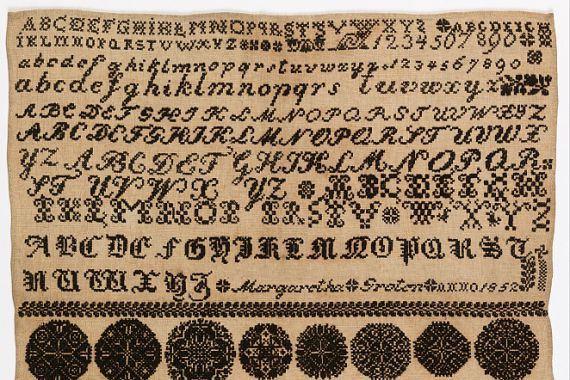 ABCDEFGHIKLMNOPQRSTUVWXYZ ABCDEFGH
IKLMNOPQRSTUVWXYZ 1234567890
abcdefghiklmnopqrstuvwxyz 1234567890
abcdefghiklmnopqrs tuvwxyz
ABCDEFGHIKLMNOPQRSTUVWXYZ
ABCDEFGHIKLMNOPQRSTUVWX
YZ ABCDEF GHIKLMNOPQR
ST UVWX YZ ABCDEFGH
IKLMNOP QRSTUVWXYZ
ABCDEFGHIKLMNOPQRST
UVWXYZ Margaretha Groten ANNO 1852